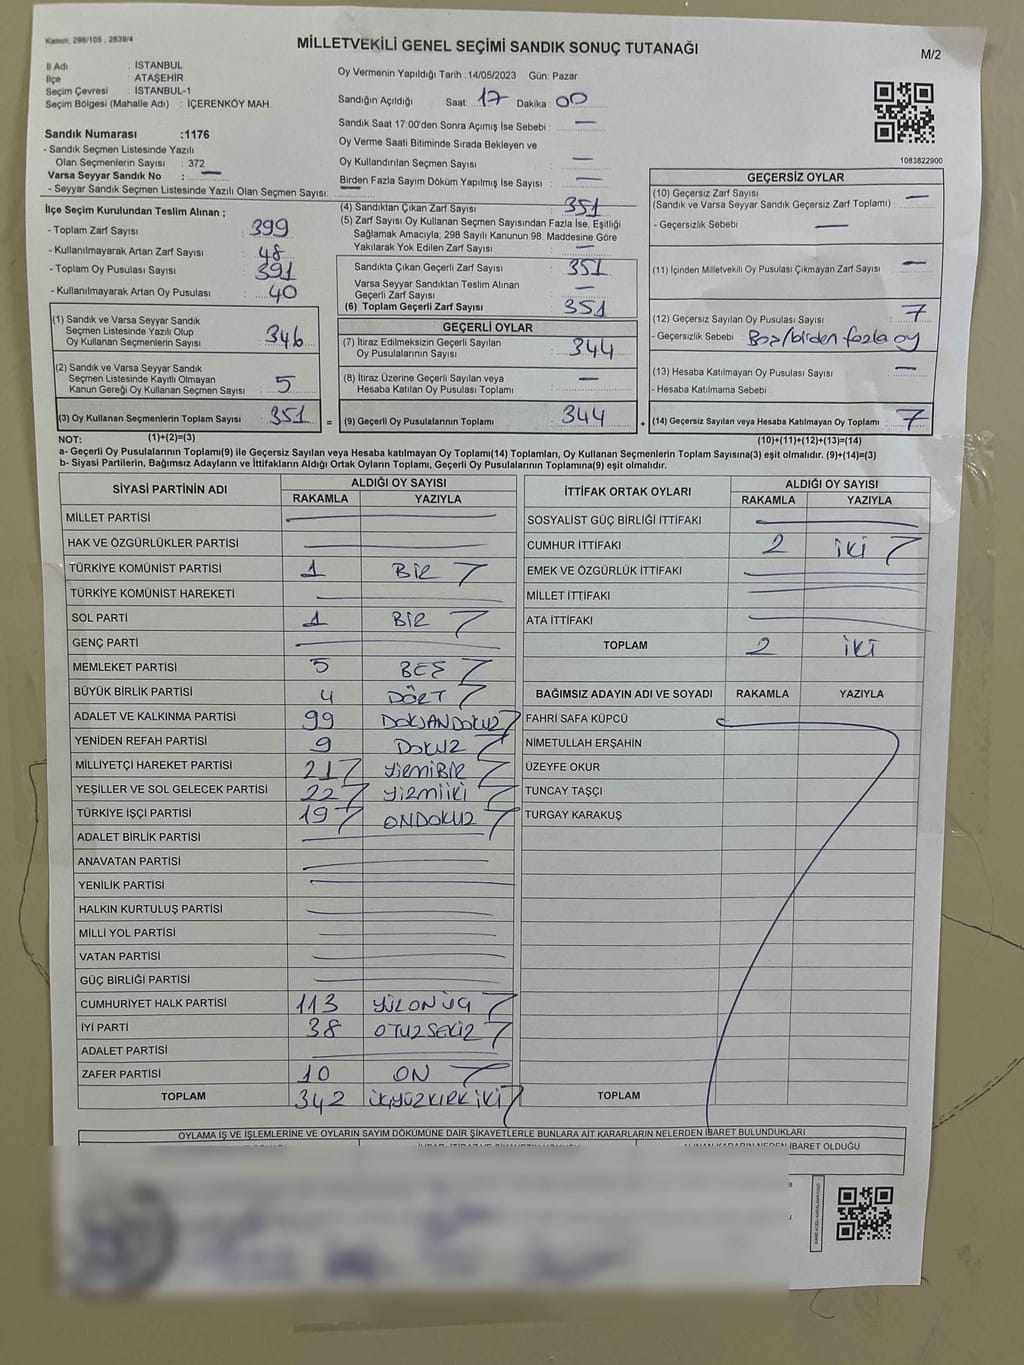 Kanun; 298/105 , 2839/4
MİLLETVEKİLİ GENEL SEÇİMİ SANDIK SONUÇ TUTANAĞI
M/2
İl Adı : İSTANBUL
İlçe : ATAŞEHİR
Seçim Çevresi : İSTANBUL-1
Seçim Bölgesi (Mahalle Adı) : İÇERENKÖY MAH.
Oy Vermenin Yapıldığı Tarih : 14/05/2023 Gün: Pazar
Sandığın Açıldığı Saat: 17 Dakika: 00
Sandık Saat 17:00'den Sonra Açımış İse Sebebi : —
Oy Verme Saati Bitiminde Sırada Bekleyen ve
Oy Kullandırılan Seçmen Sayısı —
Birden Fazla Sayım Döküm Yapılmış İse Sayısı —
1083822900
Sandık Numarası :1176
- Sandık Seçmen Listesinde Yazılı
Olan Seçmenlerin Sayısı : 372
Varsa Seyyar Sandık No : —
- Seyyar Sandık Seçmen Listesinde Yazılı Olan Seçmen Sayısı: —
İlçe Seçim Kurulundan Teslim Alınan ;
- Toplam Zarf Sayısı : 399
- Kullanılmayarak Artan Zarf Sayısı : 48
- Toplam Oy Pusulası Sayısı : 391
- Kullanılmayarak Artan Oy Pusulası : 40
(1) Sandık ve Varsa Seyyar Sandık
Seçmen Listesinde Yazılı Olup
Oy Kullanan Seçmenlerin Sayısı : 346
(2) Sandık ve Varsa Seyyar Sandık
Seçmen Listesinde Kayıtlı Olmayan
Kanun Gereği Oy Kullanan Seçmen Sayısı : 5
(3) Oy Kullanan Seçmenlerin Toplam Sayısı 351
(4) Sandıktan Çıkan Zarf Sayısı 351
(5) Zarf Sayısı Oy Kullanan Seçmen Sayısından Fazla İse, Eşitliği
Sağlamak Amacıyla, 298 Sayılı Kanunun 98. Maddesine Göre
Yakılarak Yok Edilen Zarf Sayısı —
Sandıkta Çıkan Geçerli Zarf Sayısı 351
Varsa Seyyar Sandıktan Teslim Alınan
Geçerli Zarf Sayısı —
(6) Toplam Geçerli Zarf Sayısı 351
GEÇERLİ OYLAR
(7) İtiraz Edilmeksizin Geçerli Sayılan
Oy Pusulalarının Sayısı 344
(8) İtiraz Üzerine Geçerli Sayılan veya
Hesaba Katılan Oy Pusulası Toplamı —
= (9) Geçerli Oy Pusulalarının Toplamı 344 +
GEÇERSİZ OYLAR
(10) Geçersiz Zarf Sayısı
(Sandık ve Varsa Seyyar Sandık Geçersiz Zarf Toplamı) : —
- Geçersizlik Sebebi —
(11) İçinden Milletvekili Oy Pusulası Çıkmayan Zarf Sayısı —
(12) Geçersiz Sayılan Oy Pusulası Sayısı : 7
- Geçersizlik Sebebi Boş/birden fazla oy
(13) Hesaba Katılmayan Oy Pusulası Sayısı : —
- Hesaba Katılmama Sebebi
(14) Geçersiz Sayılan veya Hesaba Katılmayan Oy Toplamı 7
NOT: (1)+(2)=(3) (10)+(11)+(12)+(13)=(14)
a- Geçerli Oy Pusulalarının Toplamı(9) ile Geçersiz Sayılan veya Hesaba katılmayan Oy Toplamı(14) Toplamları, Oy Kullanan Seçmenlerin Toplam Sayısına(3) eşit olmalıdır. (9)+(14)=(3)
b- Siyasi Partilerin, Bağımsız Adayların ve İttifakların Aldığı Ortak Oyların Toplamı, Geçerli Oy Pusulalarının Toplamına(9) eşit olmalıdır.
SİYASİ PARTİNİN ADI ALDIĞI OY SAYISI
RAKAMLA YAZIYLA
MİLLET PARTİSİ
HAK VE ÖZGÜRLÜKLER PARTİSİ
TÜRKİYE KOMÜNİST PARTİSİ 1 BİR
TÜRKİYE KOMÜNİST HAREKETİ
SOL PARTİ 1 BİR
GENÇ PARTİ
MEMLEKET PARTİSİ 5 BEŞ
BÜYÜK BİRLİK PARTİSİ 4 DÖRT
ADALET VE KALKINMA PARTİSİ 99 DOKSANDOKUZ
YENİDEN REFAH PARTİSİ 9 DOKUZ
MİLLİYETÇİ HAREKET PARTİSİ 21 YİRMİBİR
YEŞİLLER VE SOL GELECEK PARTİSİ 22 YİRMİİKİ
TÜRKİYE İŞÇİ PARTİSİ 19 ONDOKUZ
ADALET BİRLİK PARTİSİ
ANAVATAN PARTİSİ
YENİLİK PARTİSİ
HALKIN KURTULUŞ PARTİSİ
MİLLİ YOL PARTİSİ
VATAN PARTİSİ
GÜÇ BİRLİĞİ PARTİSİ
CUMHURİYET HALK PARTİSİ 113 YÜZONÜÇ
İYİ PARTİ 38 OTUZSEKİZ
ADALET PARTİSİ
ZAFER PARTİSİ 10 ON
TOPLAM 342 ÜÇYÜZKIRKİKİ
İTTİFAK ORTAK OYLARI ALDIĞI OY SAYISI
RAKAMLA YAZIYLA
SOSYALİST GÜÇ BİRLİĞİ İTTİFAKI
CUMHUR İTTİFAKI 2 İKİ
EMEK VE ÖZGÜRLÜK İTTİFAKI
MİLLET İTTİFAKI
ATA İTTİFAKI
TOPLAM 2 İKİ
BAĞIMSIZ ADAYIN ADI VE SOYADI RAKAMLA YAZIYLA
FAHRİ SAFA KÜPCÜ
NİMETULLAH ERŞAHİN
ÜZEYFE OKUR
TUNCAY TAŞÇI
TURGAY KARAKUŞ
TOPLAM
OYLAMA İŞ VE İŞLEMLERİNE VE OYLARIN SAYIM DÖKÜMÜNE DAİR ŞİKAYETLERLE BUNLARA AİT KARARLARIN NELERDEN İBARET BULUNDUKLARI
ALINAN KARARIN NEDEN İBARET OLDUĞU